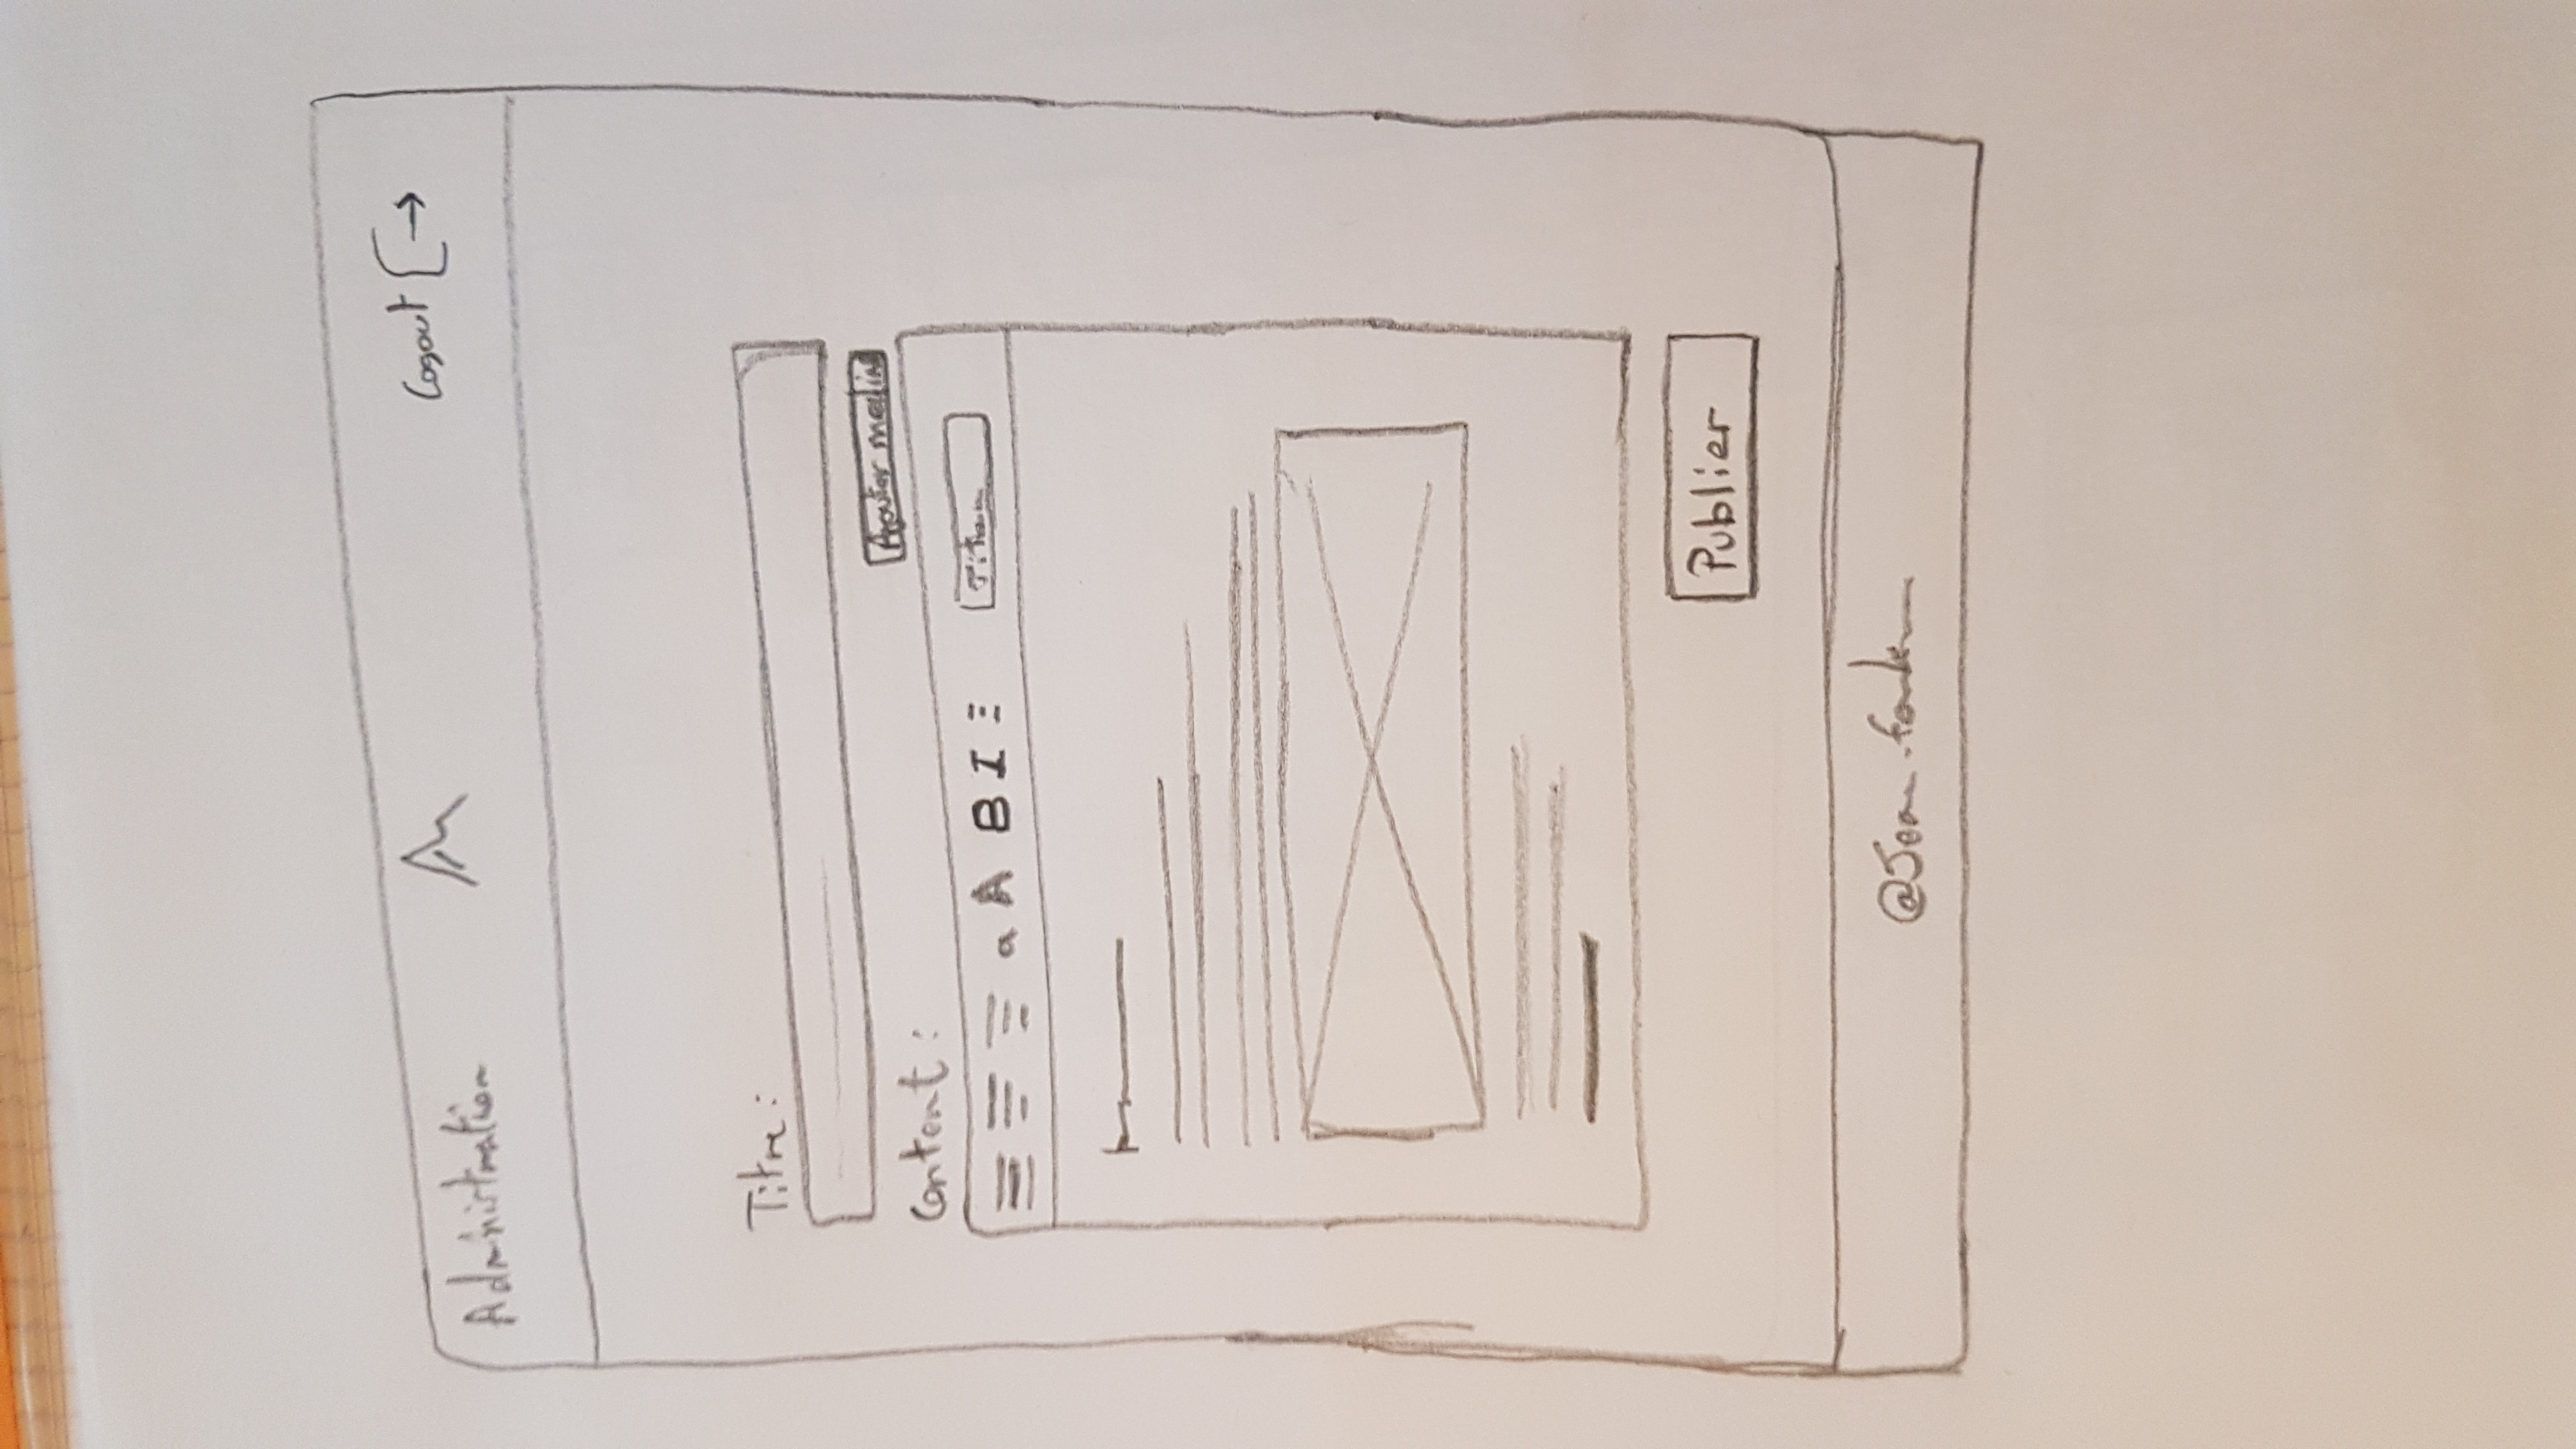 Administration
Logout
Titre :
Ajouter media
Content :
a A B I
Publier
@Jean.